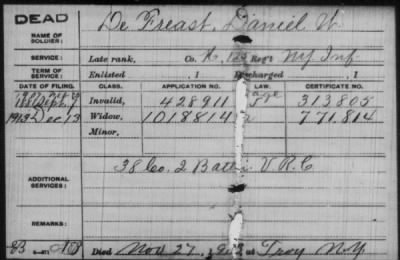 DEAD
De Freast, Daniel W.
NAME OF SOLDIER:
SERVICE: Late rank, Co. K, 125 Reg't NY Inf
TERM OF SERVICE: Enlisted , 1 Discharged , 1
DATE OF FILING. CLASS. APPLICATION NO. LAW. CERTIFICATE NO.
Sept. 9 Invalid, 428911 313805
1913 Dec 13 Widow, 1018814 771814
Minor,
ADDITIONAL SERVICES: 38 Co. 2 Batt'n V.R.C.
REMARKS:
Died Nov 27, at Troy N.Y.